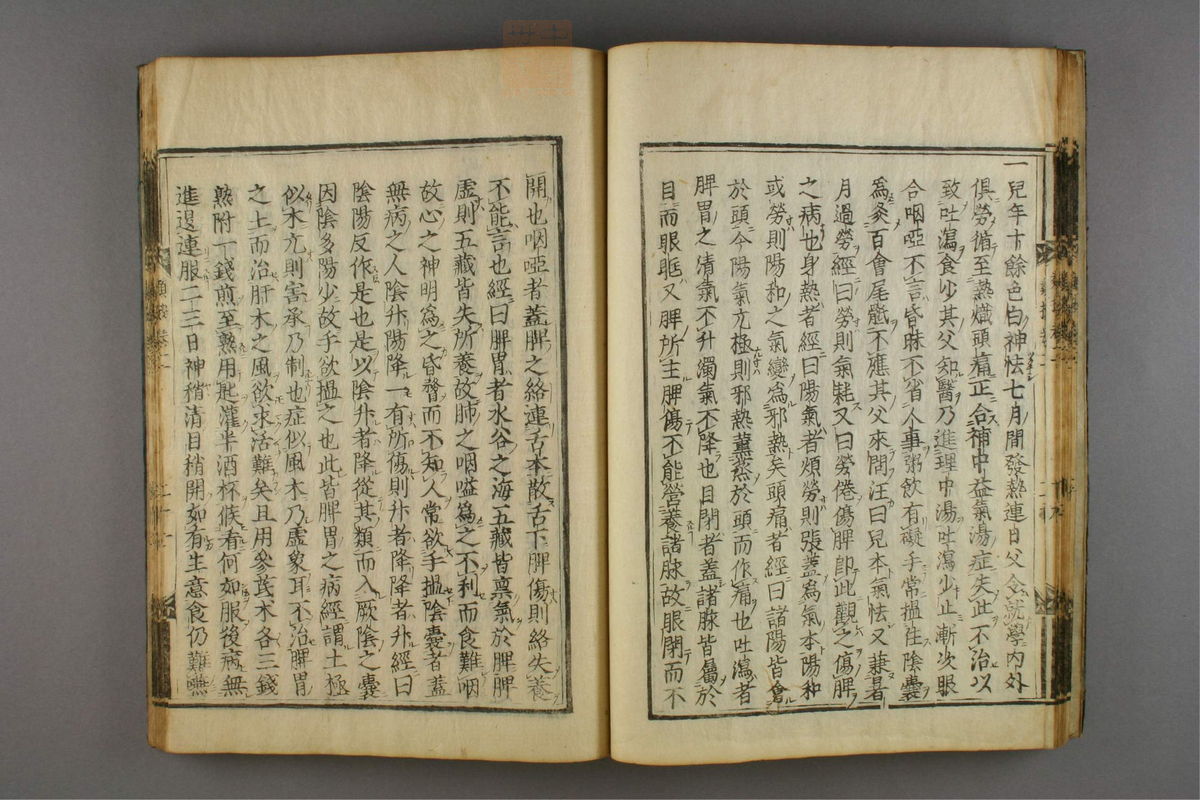 一兒年十餘色白神怯七月間發熱連日父令就學內外
俱勞循至熱熾頭痛正合補中益氣湯症失此不治以
致吐瀉食少其父知醫乃進理中湯吐瀉少止漸次眼
合咽啞不言昏昧不省人事粥飲有礙手常揾住陰囊
為灸百會尾骶不應其父來問汪曰兒本氣怯又兼暑
月過勞經曰勞則氣耗又曰勞倦傷脾即此觀之傷脾
之病也身熱者經曰陽氣者煩勞則張蓋為氣本陽和
或勞則陽和之氣變為邪熱矣頭痛者經曰諸陽皆會
於頭今陽氣亢極則邪熱薰蒸於頭而作痛也吐瀉者
脾胃之清氣不升濁氣不降也目閉者蓋諸脉皆屬於
目而眼眶又脾所主脾傷不能營養諸脉故眼閉而不
開也咽啞者蓋脾之絡連舌本散舌下脾傷則絡失養
不能言也經曰脾胃者水谷之海五藏皆禀氣於脾脾
虛則五藏皆失所養故肺之咽嗌為之不利而食難咽
故心之神明為之昏瞀而不知人常欲手揾陰囊者蓋
無病之人陰升陽降一有所傷則升者降降者升經曰
陰陽反作是也是以陰升者降從其類而入厥陰之囊
因陰多陽少故手欲揾之也此皆脾胃之病經謂土極
似木亢則害承乃制也症似風木乃虛象耳不治脾胃
之土而治肝木之風欲求活難矣且用參茋木各三錢
熟附一錢煎至熟用匙灌半酒杯候看何如服後病無
進退連服二三日神稍清目稍開如有生意食仍難嚥